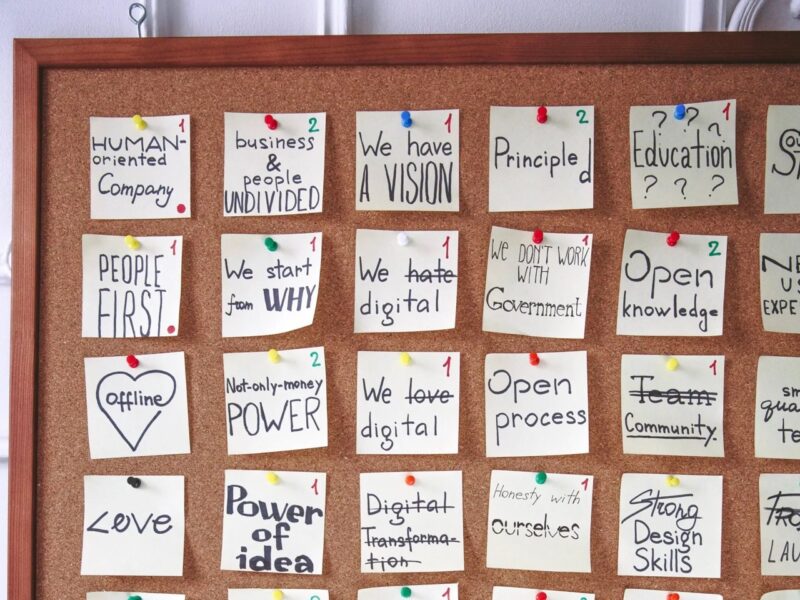 1
HUMAN-
oriented
Company
2
business
&
people
UNDIVIDED
1
We have
A VISION
2
Principled
1
? ? ?
Education
? ? ?
1
PEOPLE
FIRST.
1
We start
from WHY
1
We hate
digital
1
We DON'T WORK
WITH
Government
2
Open
knowledge
offline
2
Not-only-money
POWER
1
We love
digital
Open
process
1
Team
Community.
Love
1
Power
of
idea
Digital
Transforma-
tion
1
Honesty with
ourselves
Strong
Design
Skills